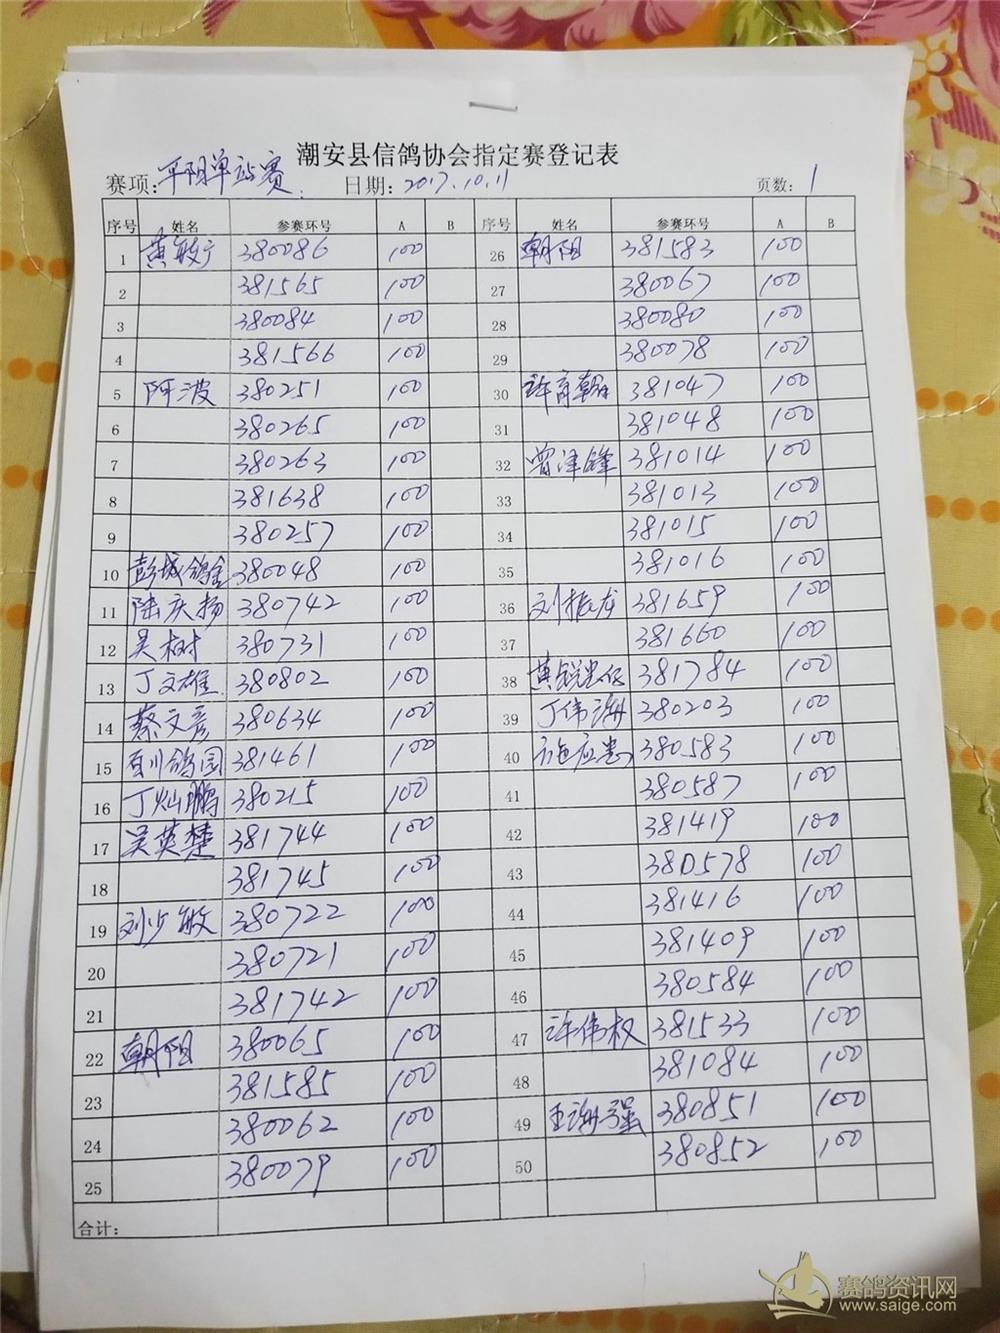 潮安县信鸽协会指定赛登记表
赛项: 平阳单站赛 日期: 2017.10.11 页数: 1
序号 姓名 参赛环号 A B 序号 姓名 参赛环号 A B
1 黄敏宁 380086 100 26 朝阳 381583 100
2 381565 100 27 380067 100
3 380084 100 28 380080 100
4 381566 100 29 380078 100
5 阿波 380251 100 30 许育朝 381047 100
6 380265 100 31 381048 100
7 380263 100 32 曾泽锋 381014 100
8 381638 100 33 381013 100
9 380257 100 34 381015 100
10 彭城鸽舍 380048 100 35 381016 100
11 陆庆扬 380742 100 36 刘振龙 381659 100
12 吴树 380731 100 37 381660 100
13 丁文雄 380802 100 38 黄锐忠 381784 100
14 蔡文彦 380634 100 39 丁伟海 380203 100
15 百川鸽园 381461 100 40 施应忠 380583 100
16 丁灿鹏 380215 100 41 380587 100
17 吴英楚 381744 100 42 381419 100
18 381745 100 43 380578 100
19 刘少敏 380722 100 44 381416 100
20 380721 100 45 381409 100
21 381742 100 46 380584 100
22 朝阳 380065 100 47 许伟权 381533 100
23 381585 100 48 381084 100
24 380062 100 49 王海强 380851 100
25 380079 100 50 380852 100
合计:
赛鸽资讯网
www.saige.com